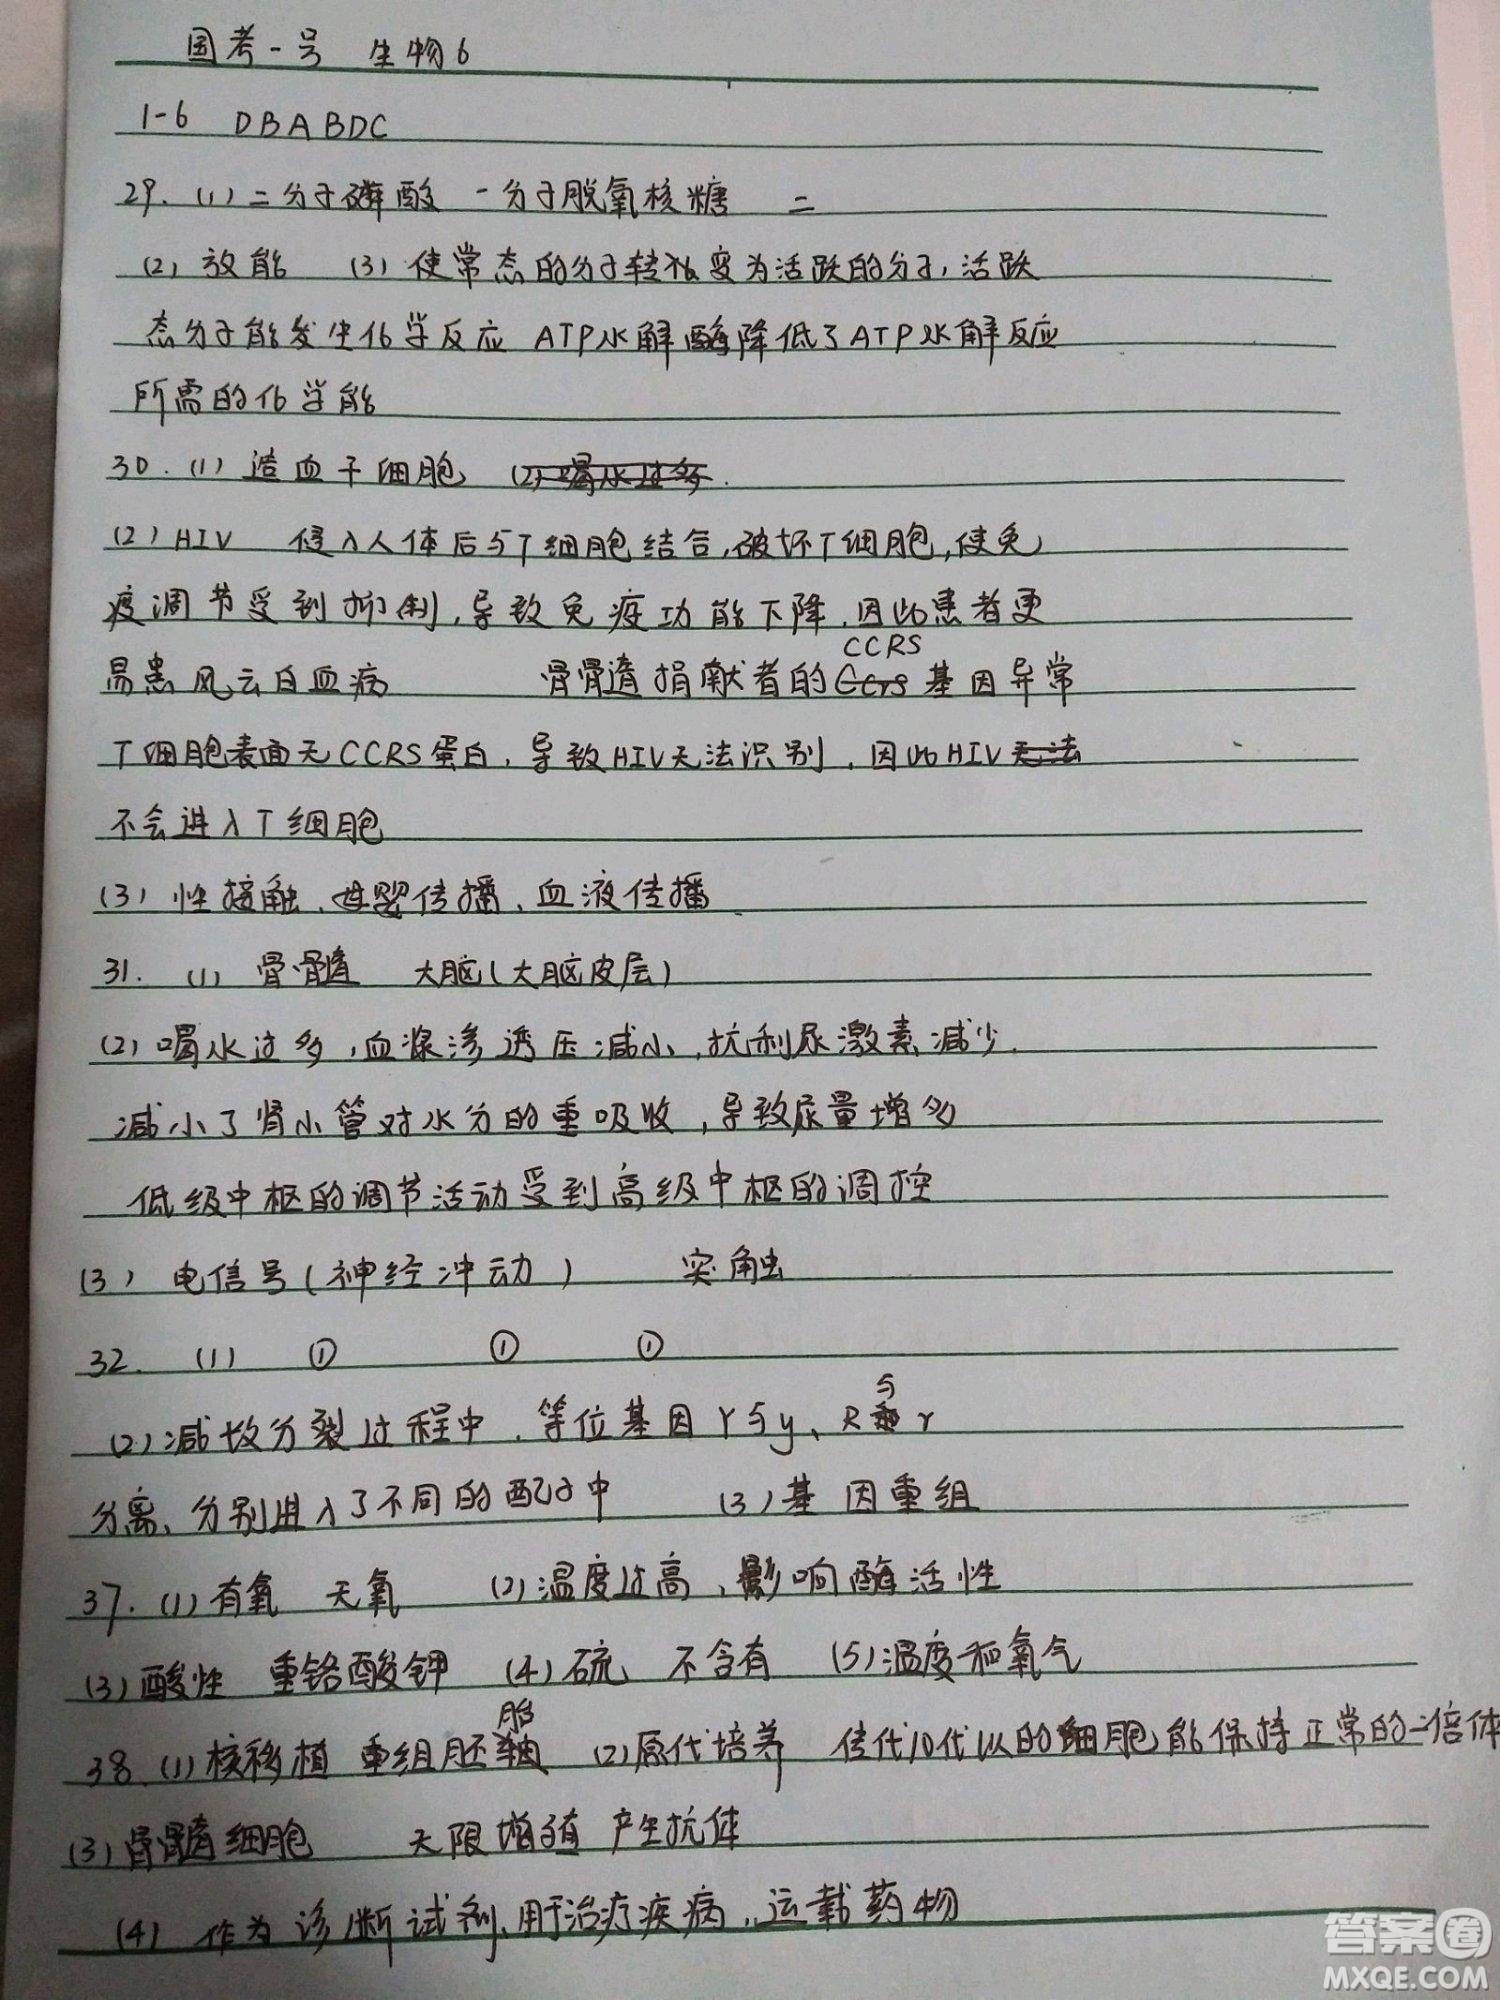 国考一号 生物6
1-6 DBABDC
29. (1) 二分子磷酸 一分子脱氧核糖 二
(2) 放能 (3) 使常态的分子转变为活跃的分子，活跃
态分子能发生化学反应 ATP水解酶降低了ATP水解反应
所需的化学能
30. (1) 造血干细胞 (2) 喝水过多.
(2) HIV 侵入人体后与T细胞结合,破坏T细胞,使免
疫调节受到抑制,导致免疫功能下降,因此患者更
易患风云白血病 骨骨髓捐献者的CCRS基因异常
T细胞表面无CCRS蛋白,导致HIV无法识别,因此HIV无法
不会进入T细胞
(3) 性接触、母婴传播、血液传播
31. (1) 骨髓 大脑(大脑皮层)
(2) 喝水过多,血浆渗透压减小,抗利尿激素减少.
减小了肾小管对水分的重吸收,导致尿量增多
低级中枢的调节活动受到高级中枢的调控
(3) 电信号(神经冲动) 突触
32. (1) ① ① ①
(2) 减数分裂过程中,等位基因Y与y、R与r
分离、分别进入了不同的配子中 (3) 基因重组
37. (1) 有氧 无氧 (2) 温度过高,影响酶活性
(3) 酸性 重铬酸钾 (4) 硫 不含有 (5) 温度和氧气
38. (1) 核移植 重组胚胎 (2) 原代培养 传代10代以的细胞能保持正常的二倍体
(3) 骨髓细胞 无限增殖 产生抗体
(4) 作为诊断试剂、用于治疗疾病、运载药物
答案圈
MXQE.COM